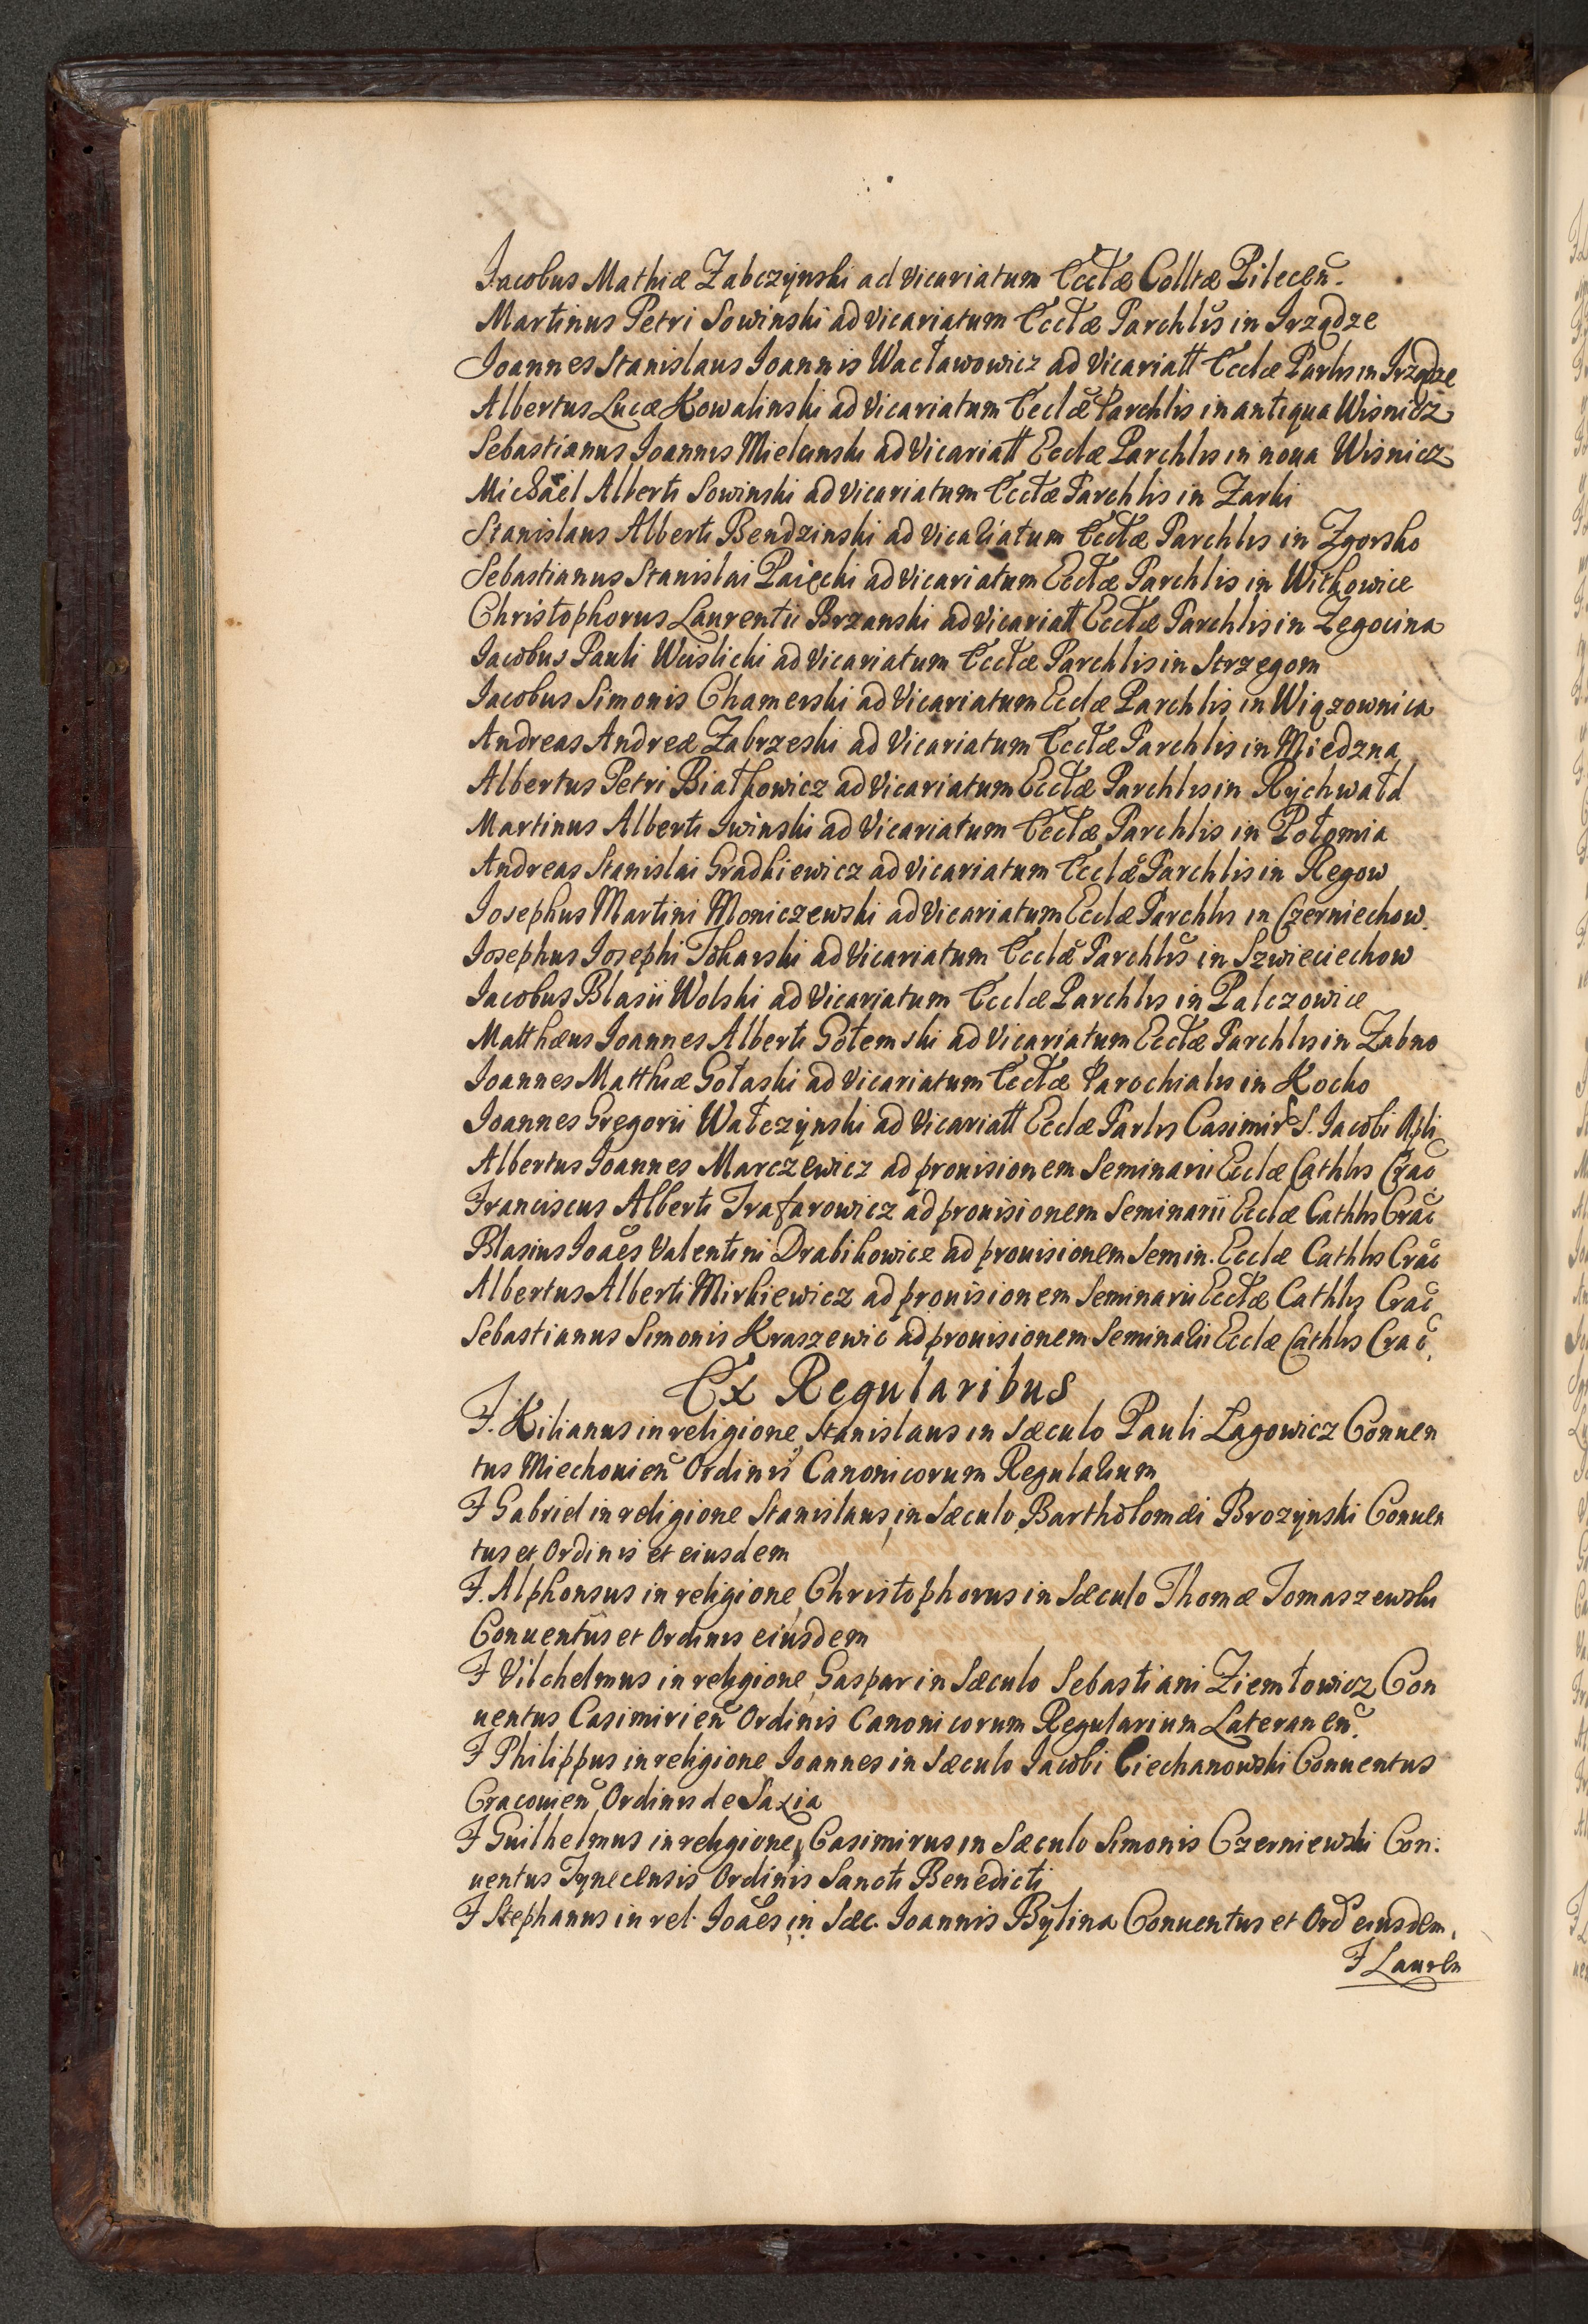 Jacobus Mathiæ Zabczynski ad vicariatum Eccłæ Colltæ Pilecen̄.
Martinus Petri Sowinski ad vicariatum Eccłæ Parchlis in Irządze
Joannes Stanislaus Joannis Wacławowicz ad vicariatt Ecclæ Parlis in Irządze
Albertus Lucæ Kowalinski ad vicariatum Ecclæ Parchlis in antiqua Wisnicz
Sebastianus Joannis Mielcinski ad vicariatt Ecclæ Parchlis in noua Wisnicz
Michael Alberti Sowinski ad vicariatum Eccłæ Parchlis in Zarki
Stanislaus Alberti Bendzinski ad vicariatum Eccłæ Parchlis in Zgorsko
Sebastianus Stanislai Paięcki ad vicariatum Eccłæ Parchlis in Witkowice
Christophorus Laurentii Brzanski ad vicariatt Eccłæ Parchlis in Zegocina
Jacobus Pauli Weislicki ad vicariatum Eccłæ Parchlis in Strzegom
Jacobus Simonis Chamerski ad vicariatum Ecclæ Parchlis in Wiązownica
Andreas Andreæ Zabrzeski ad vicariatum Eccłæ Parchlis in Miedzna
Albertus Petri Białkowicz ad vicariatum Eccłæ Parchlis in Rychwałd
Martinus Alberti Iwinski ad vicariatum Eccłæ Parchlis in Połomia
Andreas Stanislai Gradkiewicz ad vicariatum Ecclæ Parchlis in Regow
Josephus Martini Moniczewski ad vicariatum Ecclæ Parchlis in Czerniechow.
Josephus Josephi Tokarski ad vicariatum Ecclæ Parchlis in Szwieciechow
Jacobus Blasii Wolski ad vicariatum Ecclæ Parchlis in Palczowice
Matthæus Joannes Alberti Gołemski ad vicariatum Eccłæ Parchlis in Zabno
Joannes Matthiæ Gołaski ad vicariatum Eccłæ Parochialis in Kocko
Joannes Gregorii Wałczynski ad vicariatt Ecclæ Parlis Casimir S. Jacobi Apli
Albertus Joannes Marczewicz ad prouisionem Seminarii Ecclæ Cathlis Crac̄
Franciscus Alberti Trafarowicz ad prouisionem Seminarii Ecclæ Cathlis Crac̄
Blasius Joāes Valentini Drabikowicz ad prouisionem Semin. Ecclæ Cathlis Crac̄
Albertus Alberti Mirkiewicz ad prouisionem Seminarii Eccłæ Cathlis Crac̄
Sebastianus Simonis Kraszewic ad prouisionem Seminarii Ecclæ Cathlis Crac̄.
Ex Regularibus
F. Kilianus in religione, Stanislaus in Sæculo Pauli Lagowicz Conuen
tus Miechouien̄ Ordinis Canonicorum Regularium
F Gabriel in religione Stanislaus, in Sæculo Bartholomæi Brozynski Conuen
tus et Ordinis et eiusdem
F. Alphonsus in religione, Christophorus in Sæculo Thomæ Tomaszewski
Conuentus et Ordinis eiusdem
F Vilchelmus in religione, Gaspar in Sæculo Sebastiani Ziemłowicz Con
uentus Casimirien̄ Ordinis Canonicorum Regularium Lateranen̄.
F Philippus in religione Joannes in Sæculo Jacobi Ciechanowski Conuentus
Cracouien̄ Ordinis de Saxia
F Guilhelmus in religione, Casimirus in Sæculo Simonis Czerniewski Con:
uentus Tynecensis Ordinis Sancti Benedicti
F Stephanus in rel. Joāes in Sæc. Joannis Bylina Conuentus et Ord eiusdem.
F Lauren